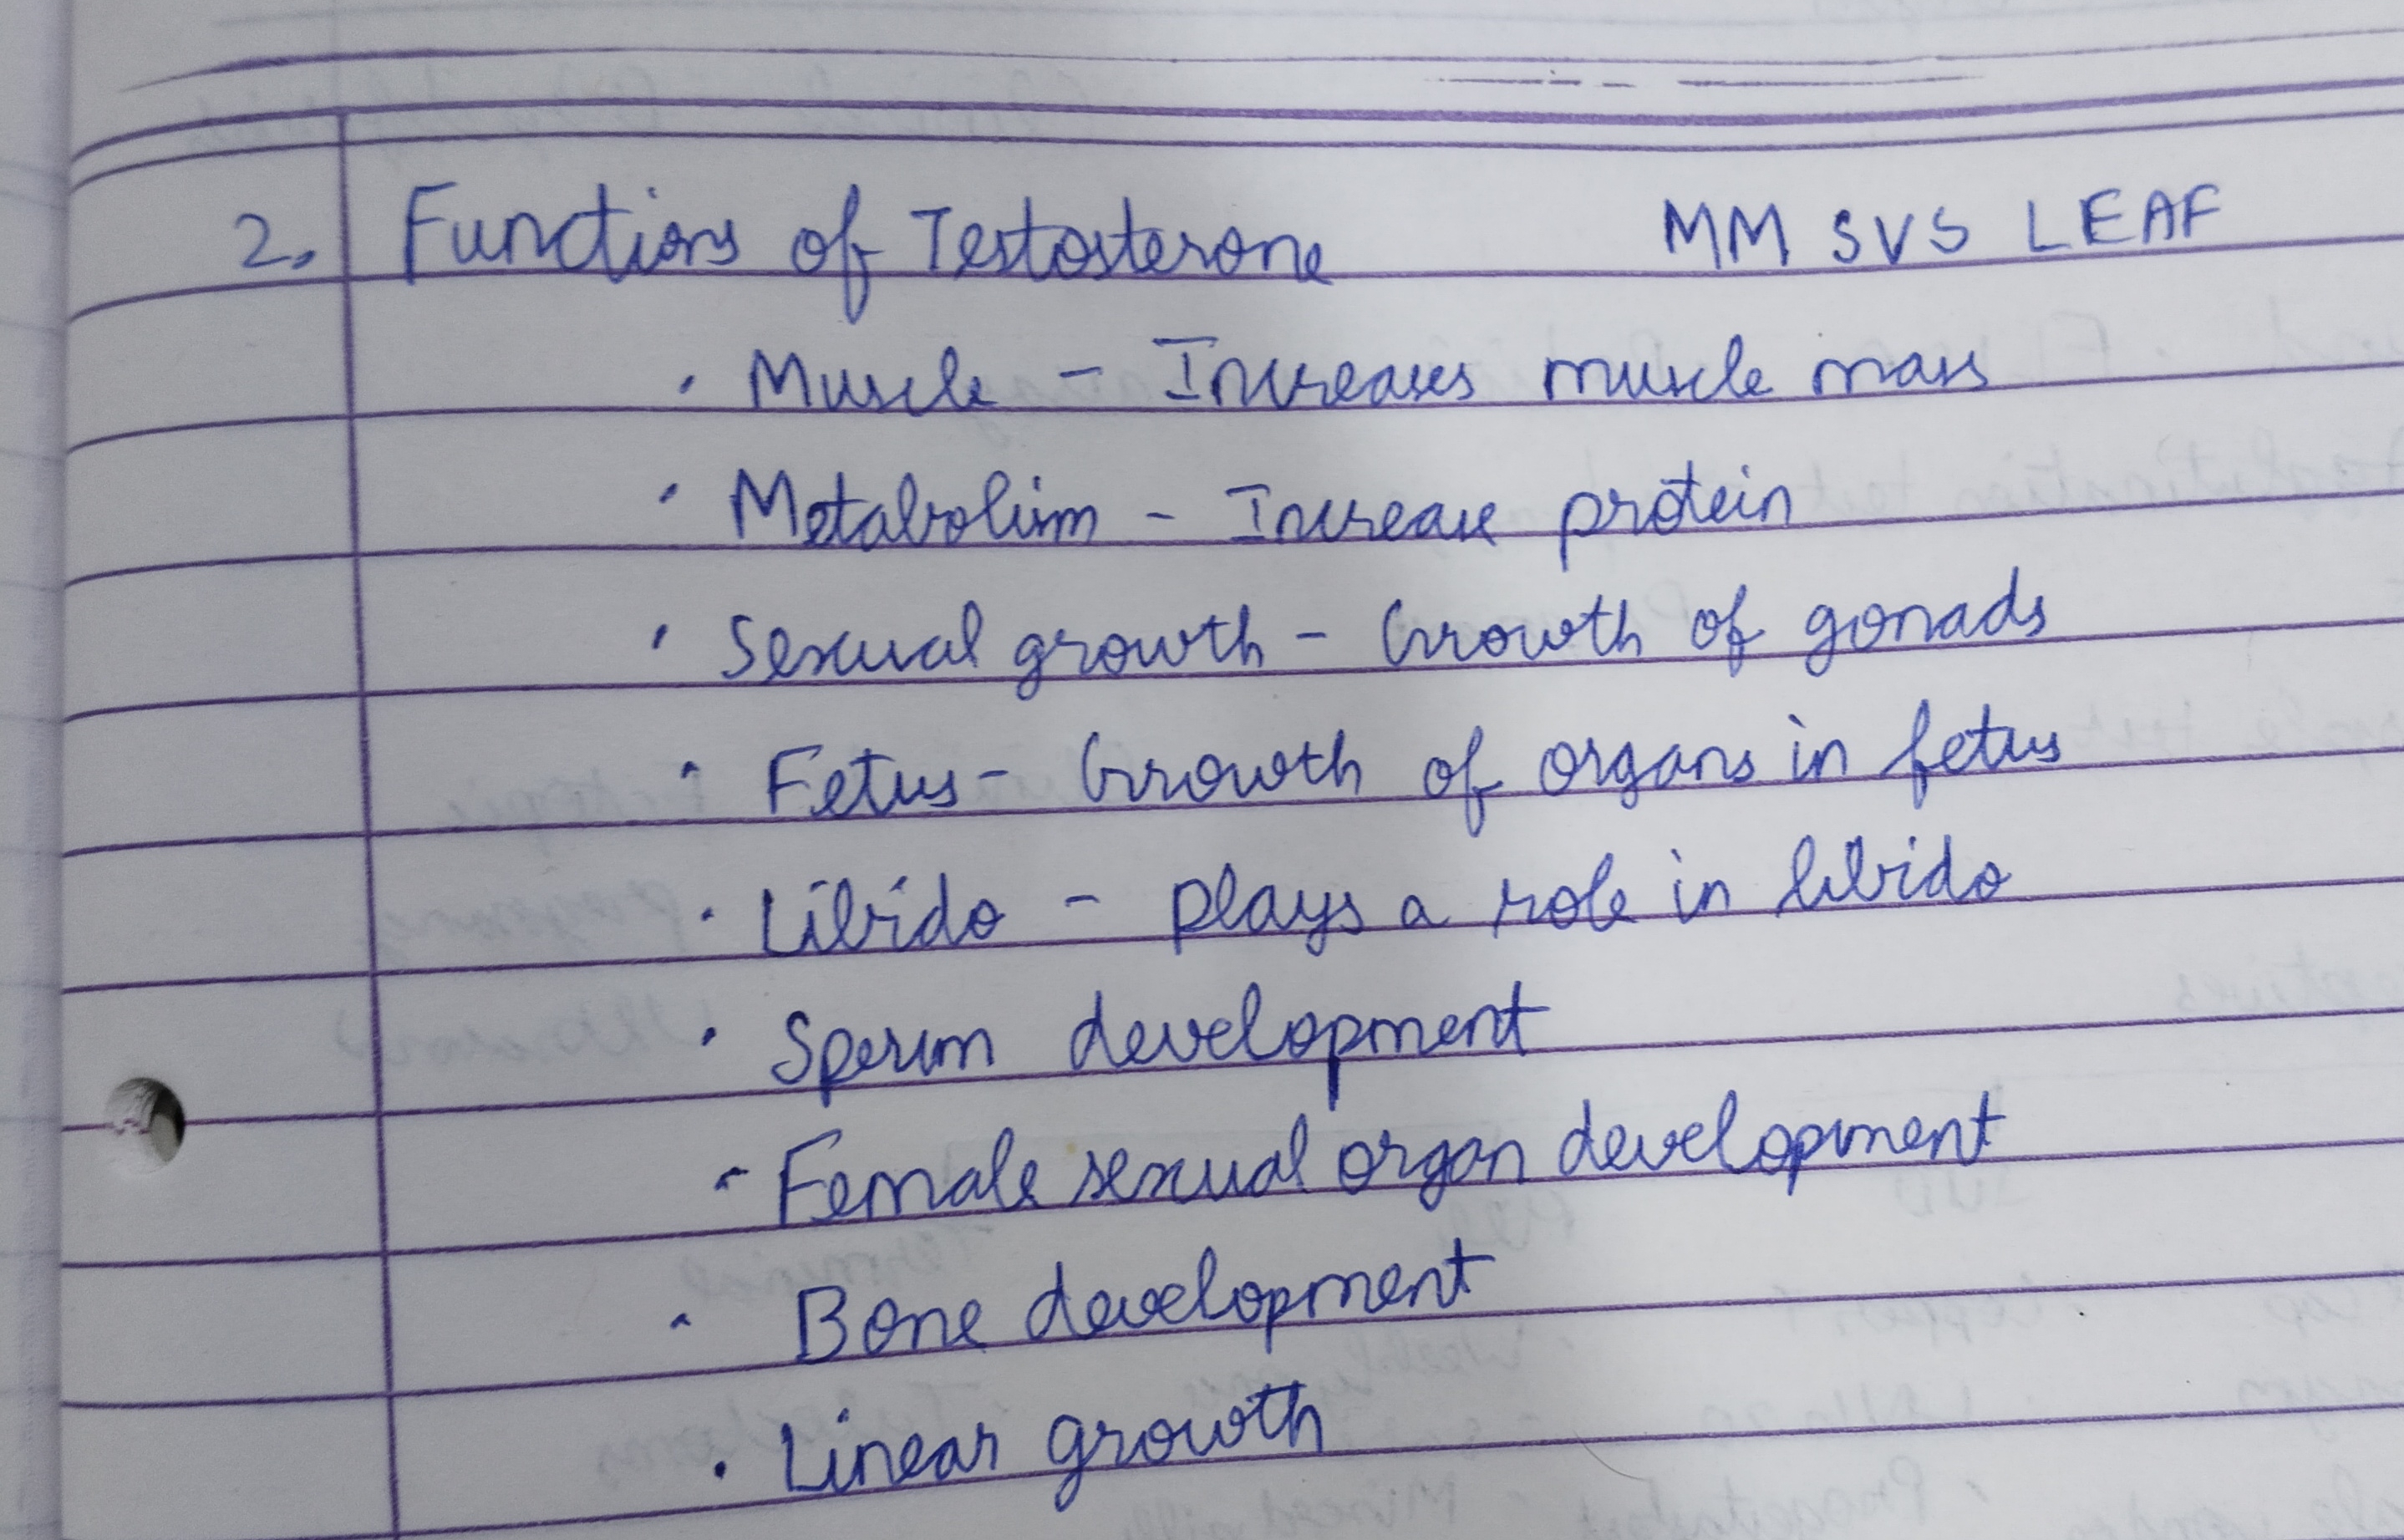 2. Functions of Testosterone MM SVS LEAF
· Muscle - Increases muscle mass
· Metabolism - Increase protein
· Sexual growth - Growth of gonads
· Fetus - Growth of organs in fetus
· Libido - plays a role in libido
· Sperm development
- Female sexual organ development
· Bone development
· Linear growth